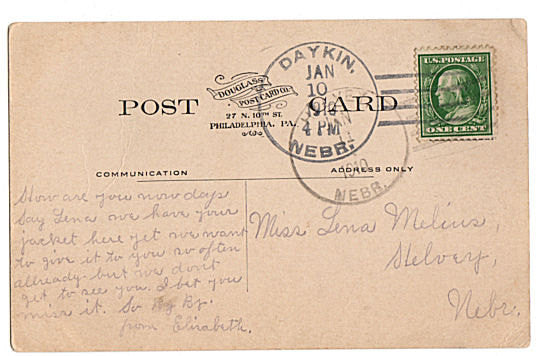 DAYKIN,
JAN
10
1910
4 PM
NEBR.
U.S. POSTAGE
ONE CENT
POST CARD
DOUGLASS
POST CARD CO.
27 N. 10TH ST.
PHILADELPHIA, PA.
JAN
11
1910
NEBR.
COMMUNICATION
ADDRESS ONLY
How are you now days
Say Lena we have your
jacket here yet we want
to give it to you so often
allready but we don't
get to see you. I bet you
miss it. So By By.
from Elisabeth.
Miss Lena Melius,
Helvey,
Nebr.